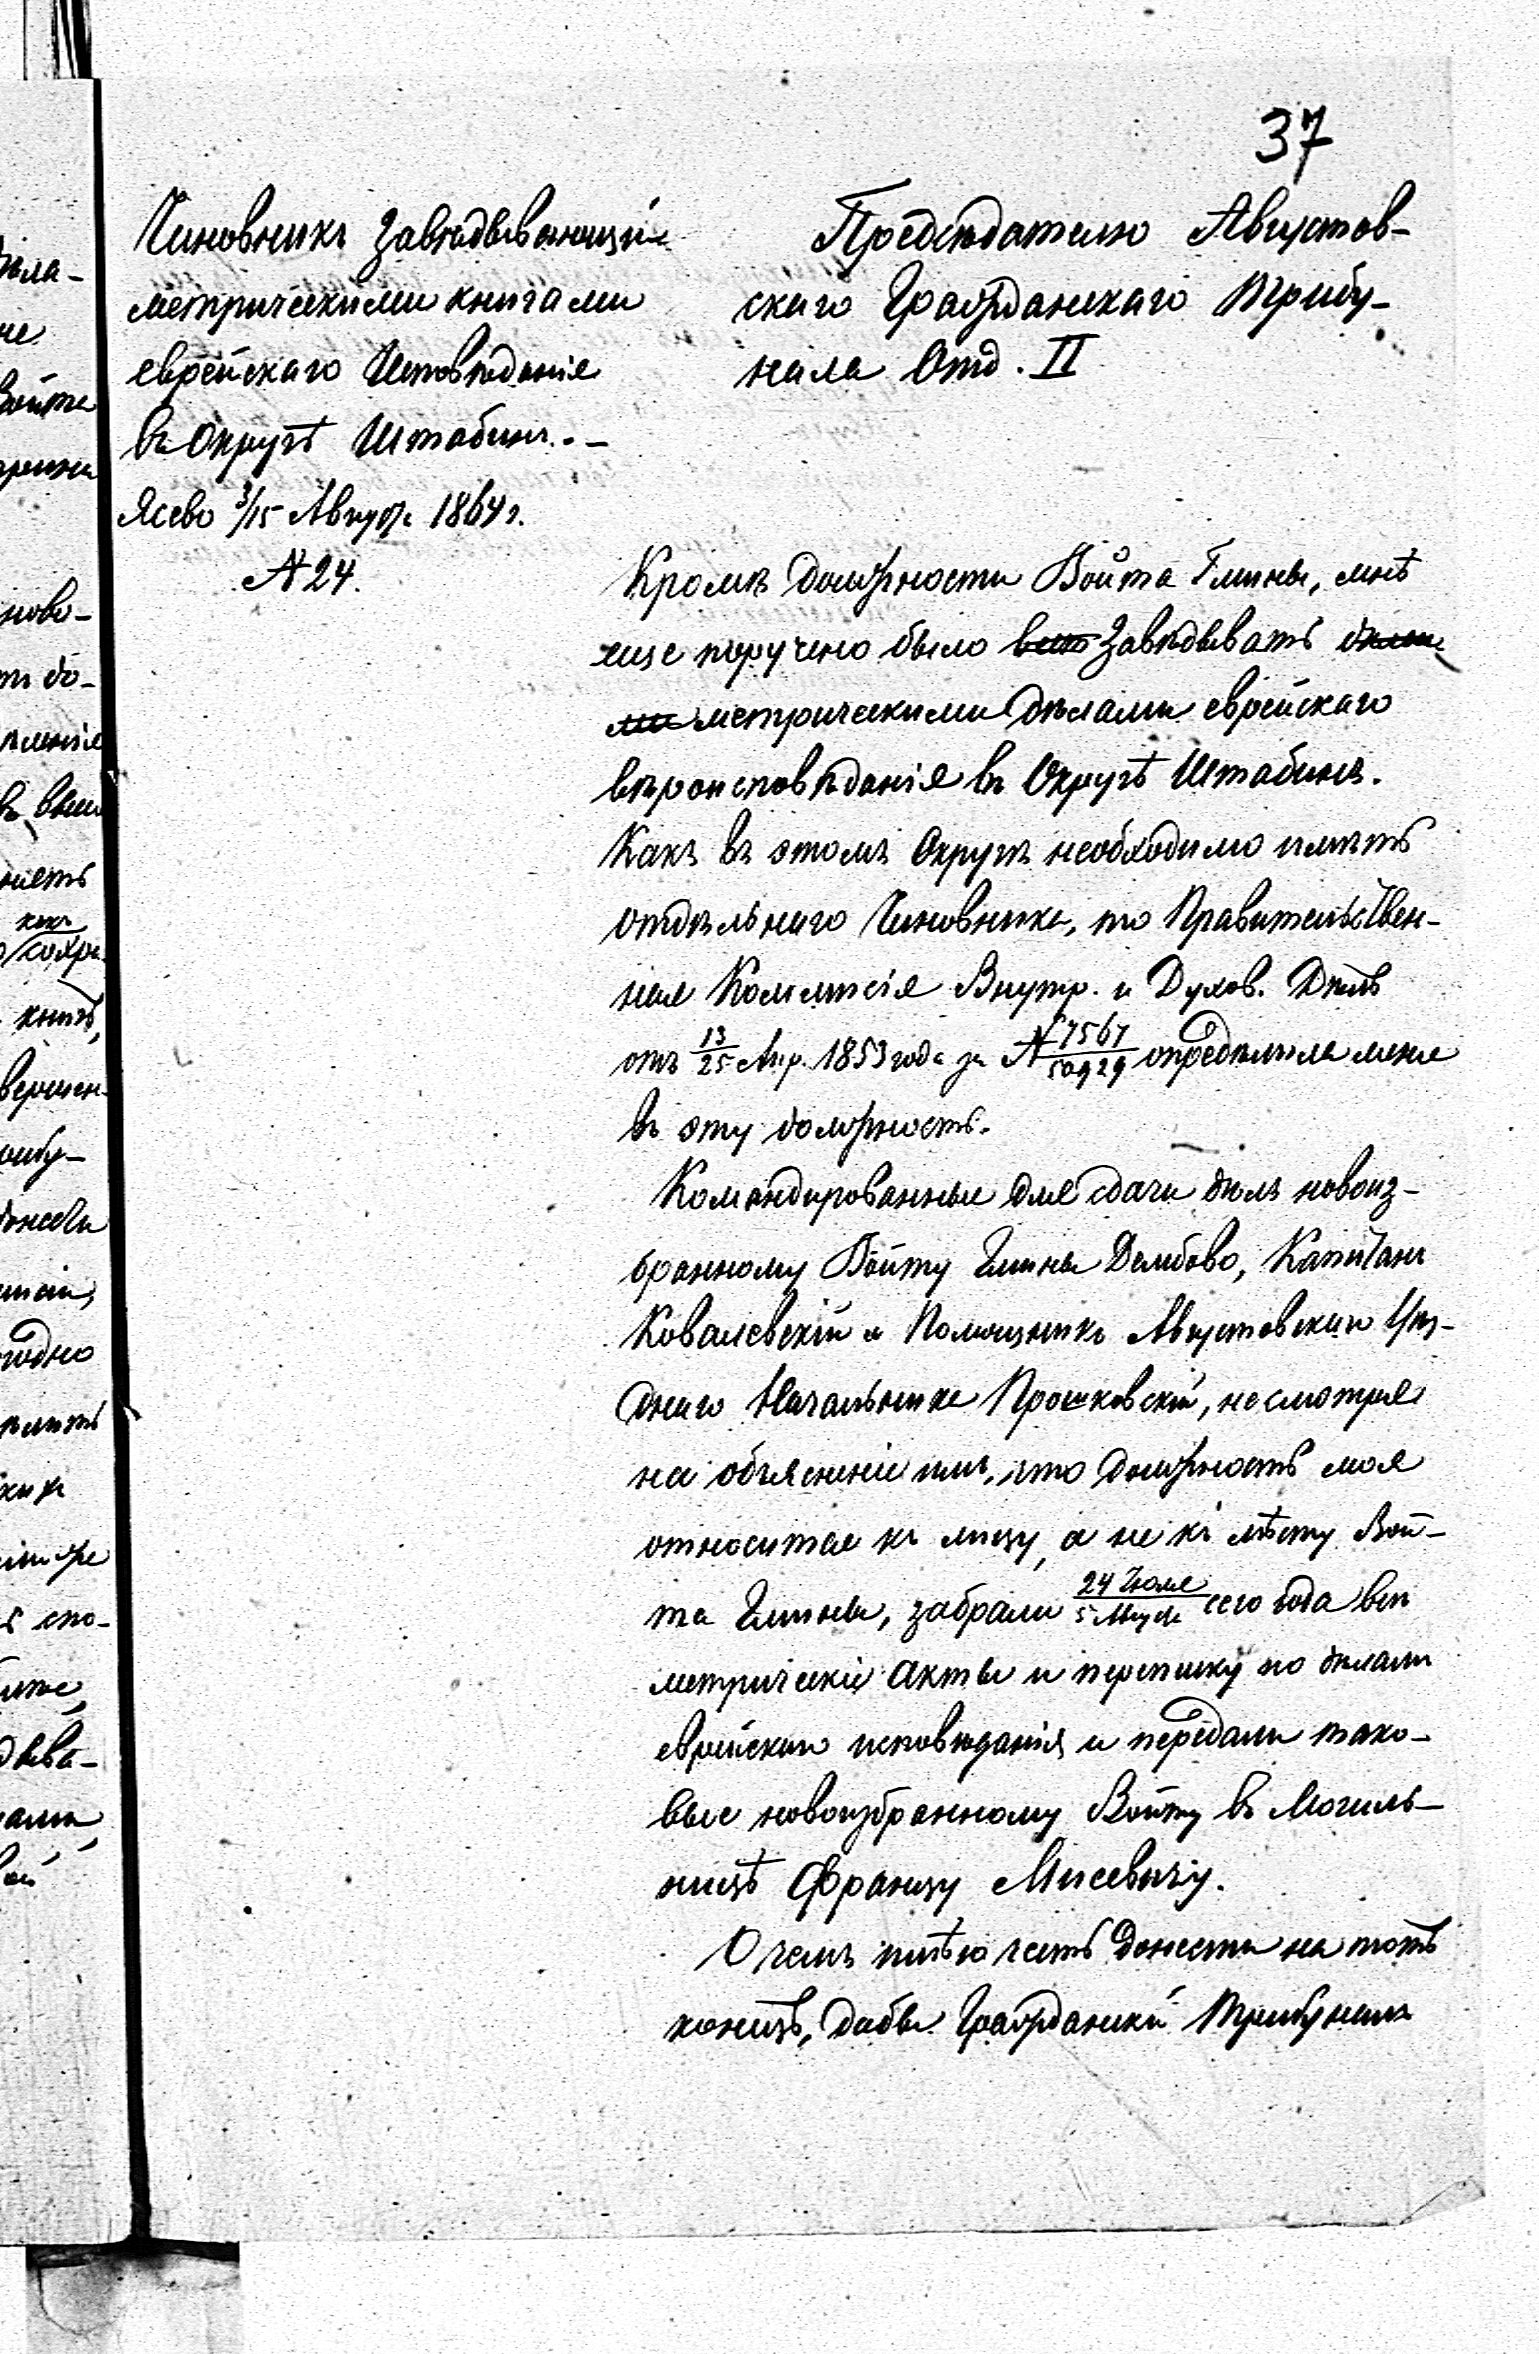 37
Чиновникъ Завѣдывающій
метрическими книгами
еврейскаго Исповѣданія
въ Округѣ Штабинъ.-
Ясево 3/15 Августа 1864 г.
№ 24.
Предсѣдателю Августов-
скаго Гражданскаго Трибу-
нала Отд. II
Кромѣ должности Войта Гмины, мнѣ
еще поручено было Завѣдывать
метрическими дѣлами еврейскаго
вѣроисповѣданія въ Округѣ Штабинъ.
Какъ въ этомъ Округѣ необходимо имѣть
отдѣльнаго Чиновника, то Правительствен-
ная Коммисія Внутр. и Духов. Дѣлъ
отъ 13/25 Апр. 1853 года за № 7567/50929 опредѣлила меня
въ эту должность.
Командированные для сдачи дѣлъ новоиз-
бранному Войту Гмины Дембово, Капитанъ
Ковалевскій и Помощникъ Августовскаго Уѣз-
днаго Начальника Прошковскій, несмотря
на объясненіе имъ, что должность моя
относится къ лицу, а не къ мѣсту Вой-
та Гмины, забрали 24 Іюля/5 Августа сего года всѣ
метрическіе акты и переписку по дѣламъ
еврейскаго исповѣданія и передали тако-
вые новоизбранному Войту въ Могиль-
ницѣ Францу Мисевичу.
О чемъ имѣю честь донести на тотъ
конецъ, дабы Гражданскій Трибуналъ